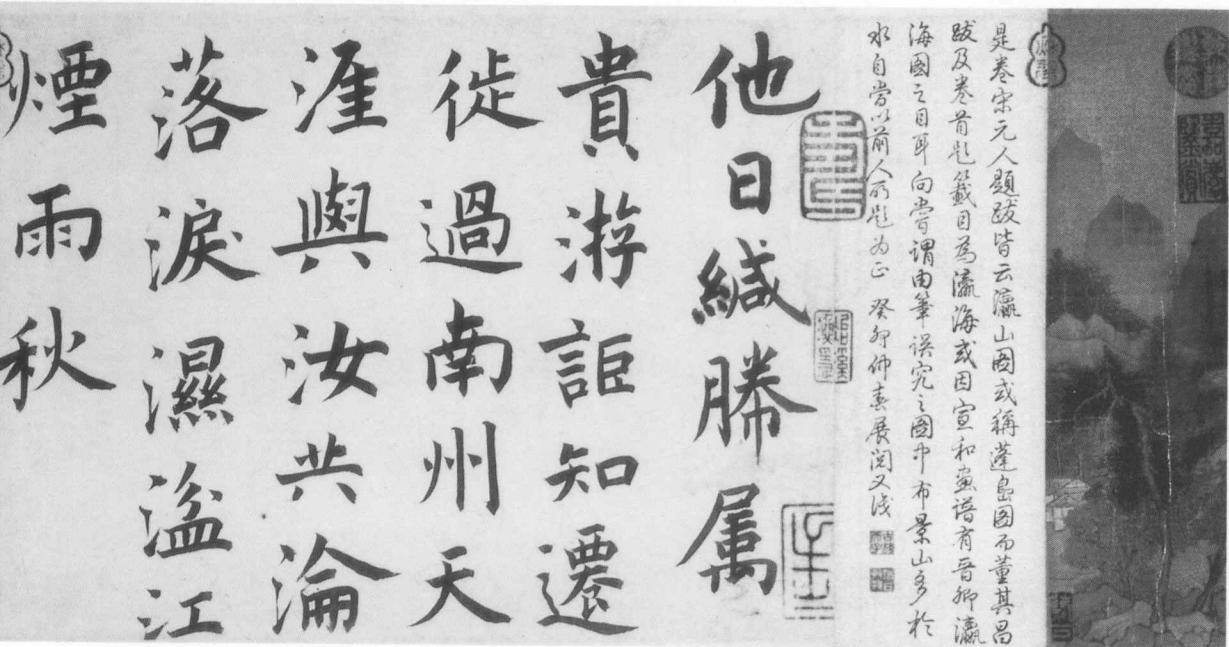 是卷宋元人題跋皆云瀛山圖或稱蓬島圖而董其昌
跋及卷首題籤目為瀛海或因宣和畫譜有晉卿瀛
海圖之目耳向嘗謂由筆誤究之圖中布景山多於
水自當以前人所題為正 癸卯仲春展閱又識
他日緘勝属
貴游詎知遷
徙過南州天
涯與汝共淪
落淚濕湓江
煙雨秋